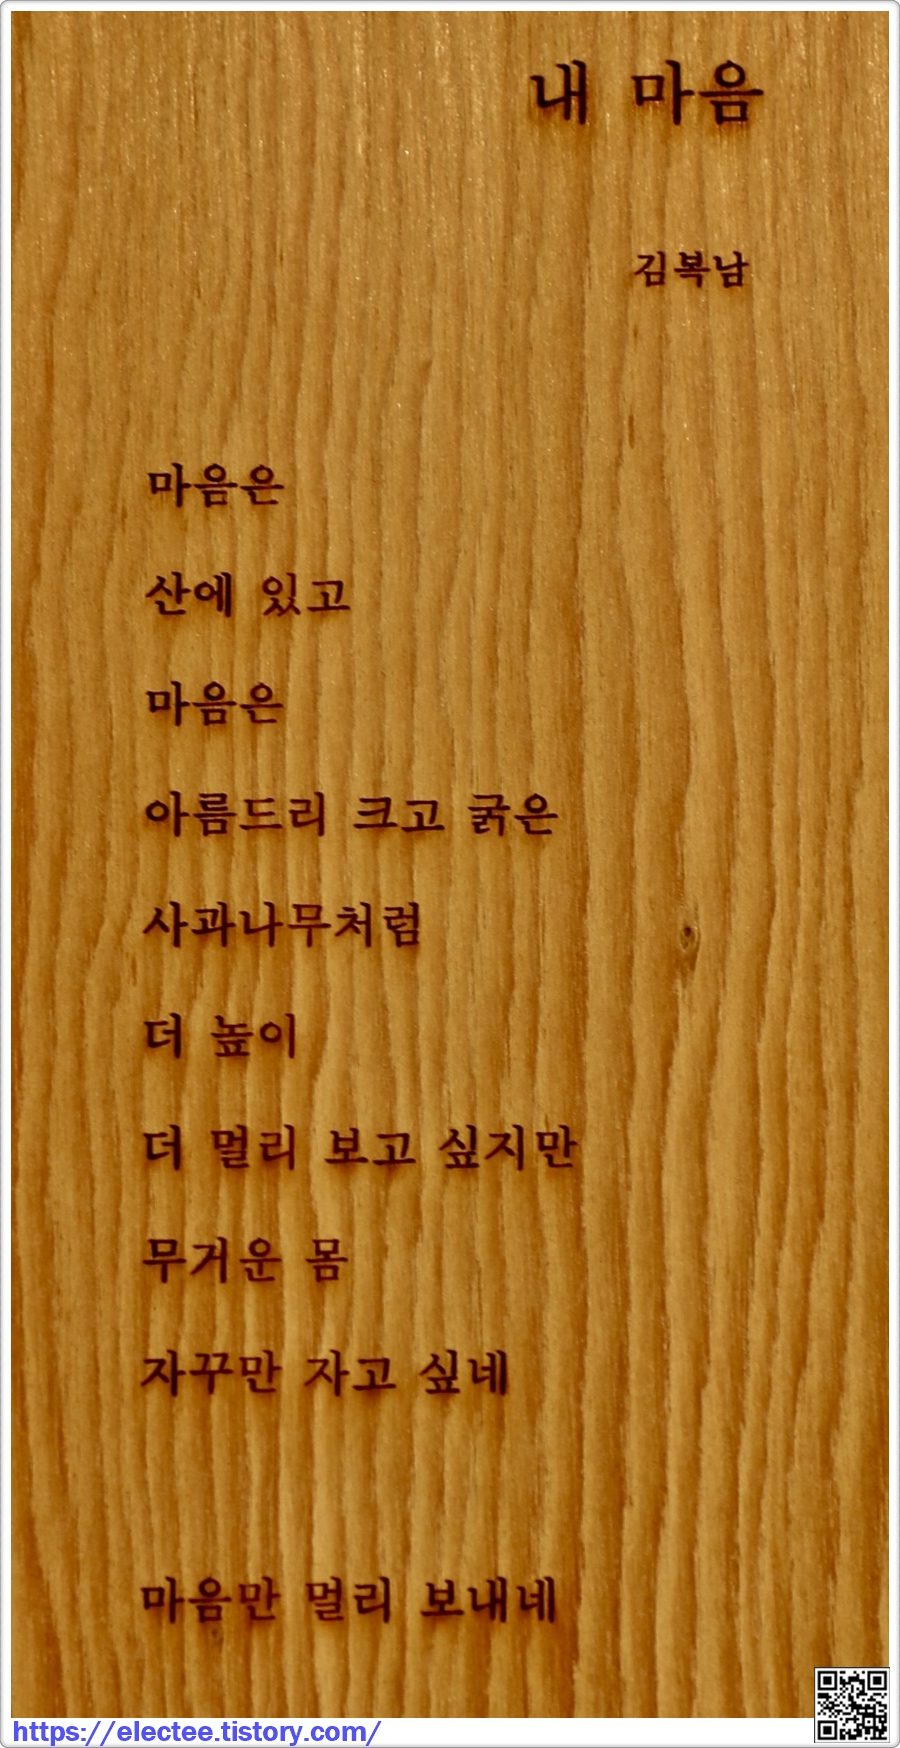 내 마음
김복남
마음은
산에 있고
마음은
아름드리 크고 굵은
사과나무처럼
더 높이
더 멀리 보고 싶지만
무거운 몸
자꾸만 자고 싶네
마음만 멀리 보내네
https://electee.tistory.com/